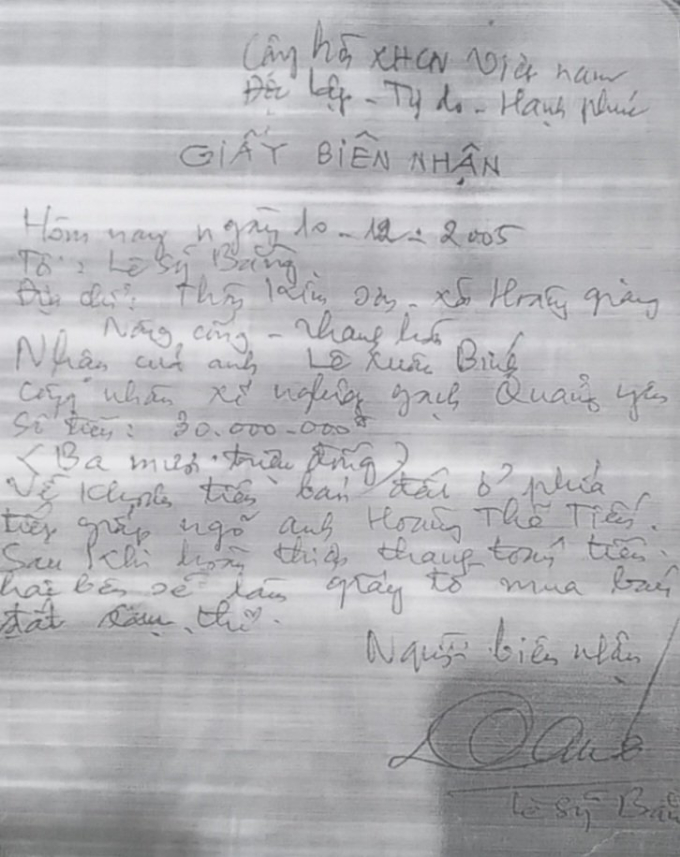 Cộng hòa XHCN Việt nam
Độc lập - Tự do - Hạnh phúc
GIẤY BIÊN NHẬN
Hôm nay ngày 10-12-2005
Tôi: Lê Sỹ Bằng
Địa chỉ: Thôn Kim Sơn - xã Hoàng Giang
Nông cống - Thanh hóa
Nhận của anh Lê Xuân
công nhân xí nghiệp gạch Quảng yên
Số tiền: 30.000.000đ
(Ba mươi triệu đồng)
Về khoản tiền bán đất ở phía
tiếp giáp ngõ anh Hoàng Thế Tiến.
Sau khi hoàn thiện thanh toán tiền.
hai bên sẽ làm giấy tờ mua bán
đất
Người biên nhận
Lê Sỹ Bằng